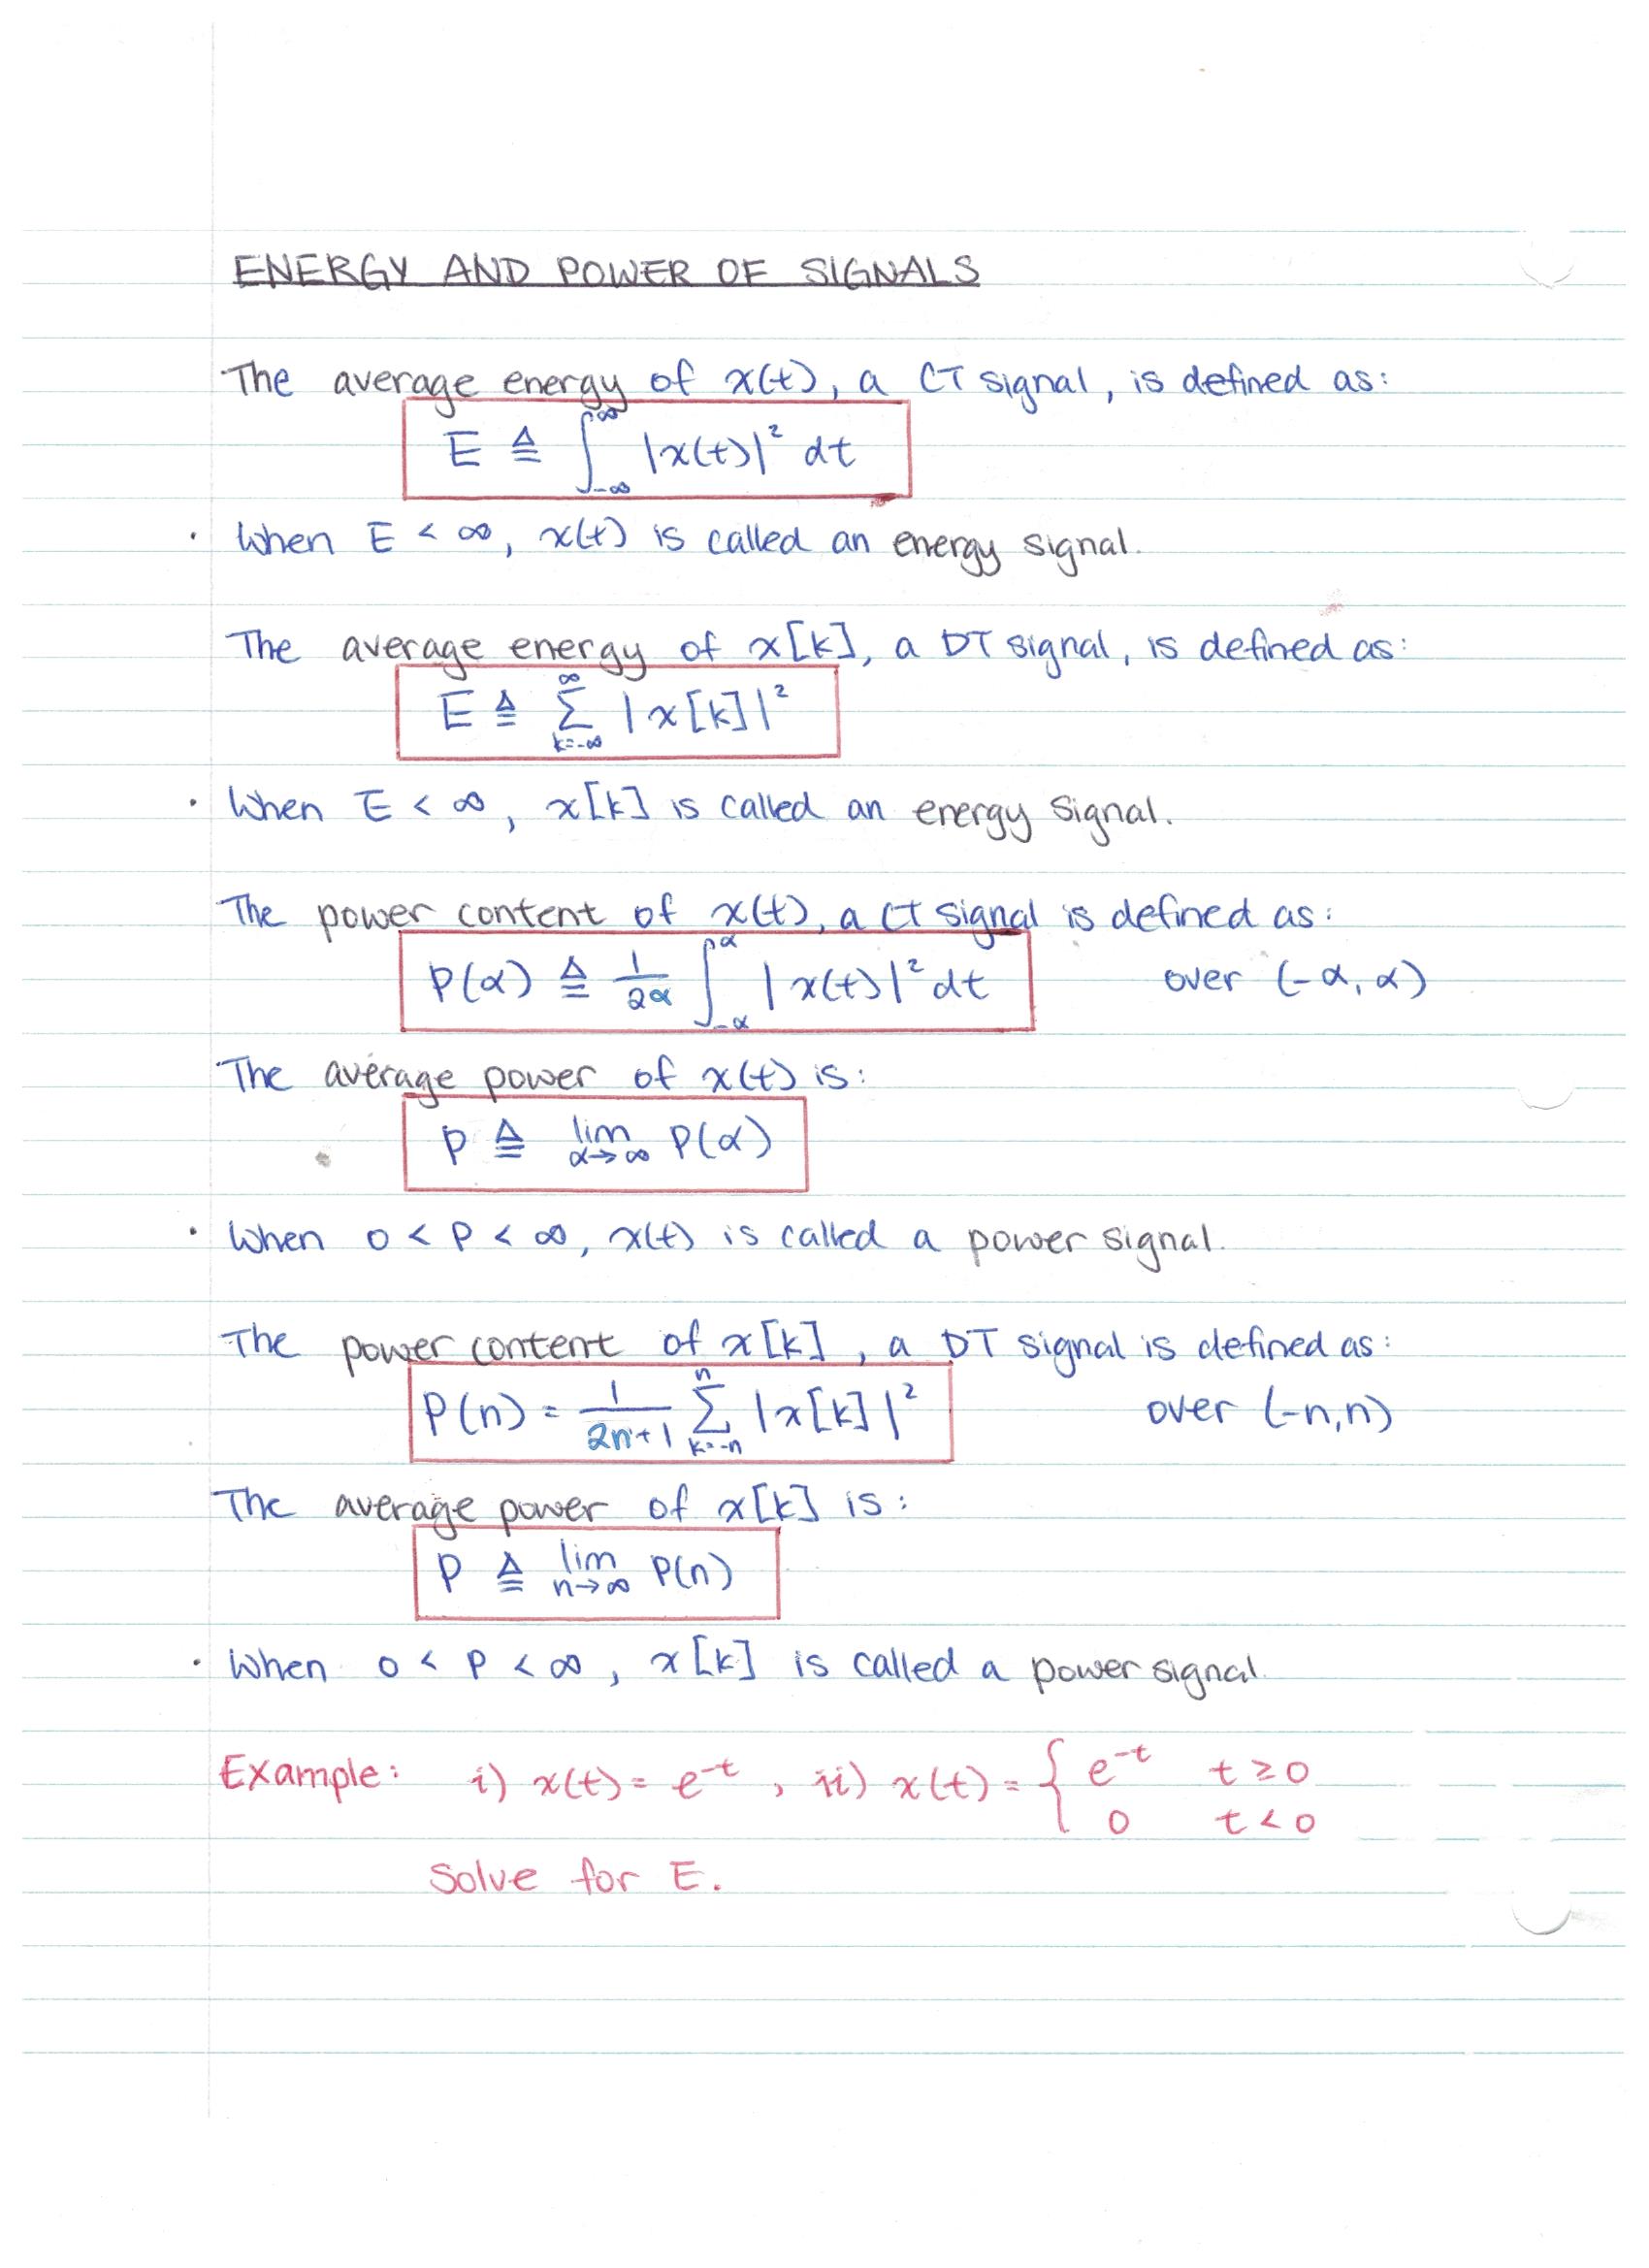 ENERGY AND POWER OF SIGNALS
The average energy of x(t), a CT signal, is defined as:
E ≜ ∫_{-∞}^{∞} |x(t)|² dt
· When E < ∞, x(t) is called an energy signal.
The average energy of x[k], a DT signal, is defined as:
E ≜ Σ_{k=-∞}^{∞} |x[k]|²
· When E < ∞, x[k] is called an energy signal.
The power content of x(t), a CT signal is defined as:
P(α) ≜ 1/2α ∫_{-α}^{α} |x(t)|² dt over (-α, α)
The average power of x(t) is:
P ≜ lim_{α→∞} P(α)
· When 0 < P < ∞, x(t) is called a power signal.
The power content of x[k], a DT signal is defined as:
P(n) = 1/(2n+1) Σ_{k=-n}^{n} |x[k]|² over (-n,n)
The average power of x[k] is:
P ≜ lim_{n→∞} P(n)
· When 0 < P < ∞, x[k] is called a power signal.
Example: i) x(t) = e^{-t}, ii) x(t) = { e^{-t} t ≥ 0
0 t < 0
Solve for E.